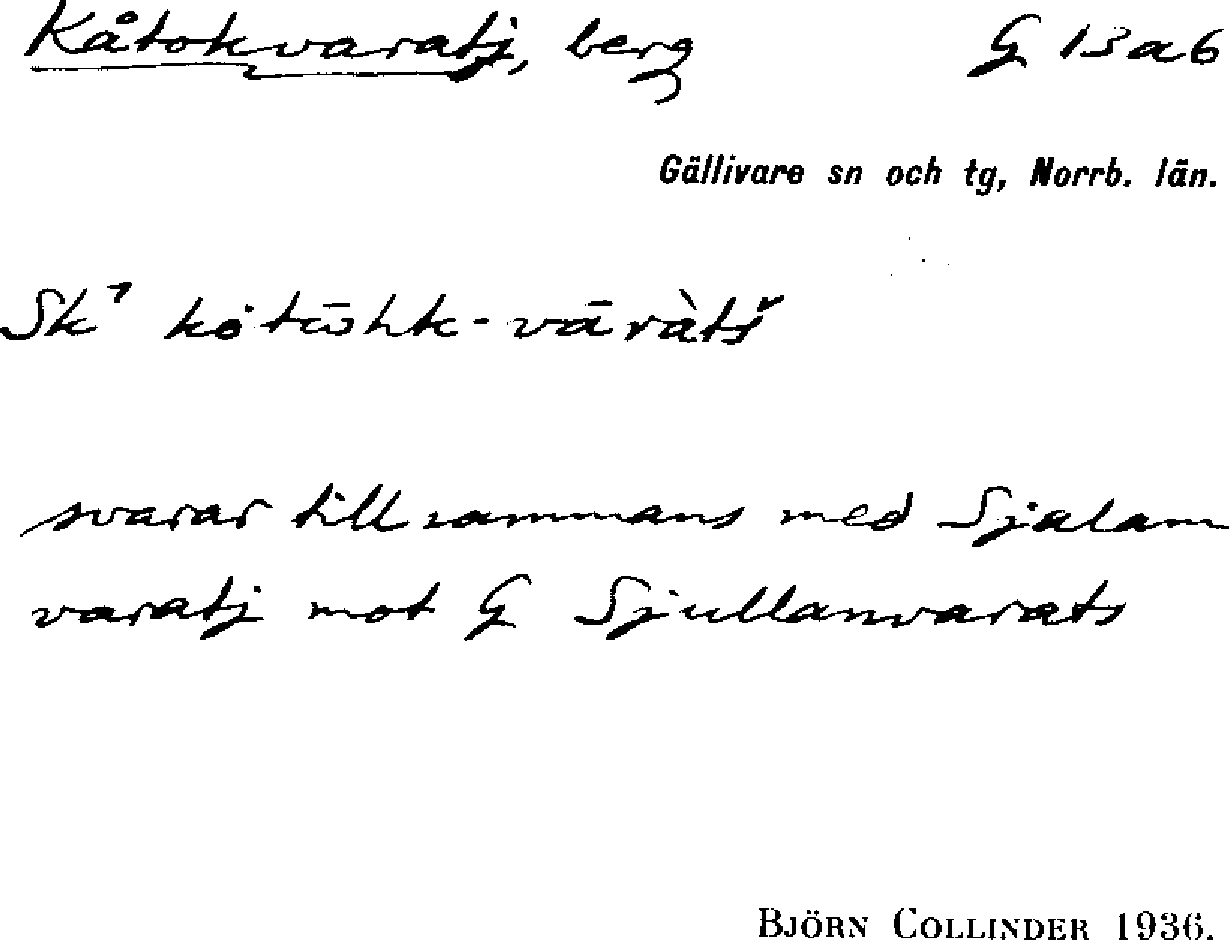 Kåtokvaratj, berg G 13 a 6
Gällivare sn och tg, Norrb. län.
Sk⁊ kȯtω̄hk-vāràtš̌
svarar tillsammans med Sjalam
varatj mot G Sjullamvarats
BJÖRN COLLINDER 1936.